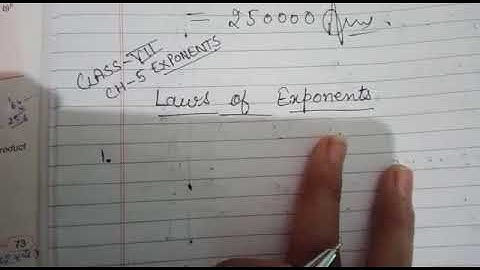 = 250000 Ans.
CLASS-VII
CH-5 EXPONENTS
Laws of Exponents
1.
roduct
73